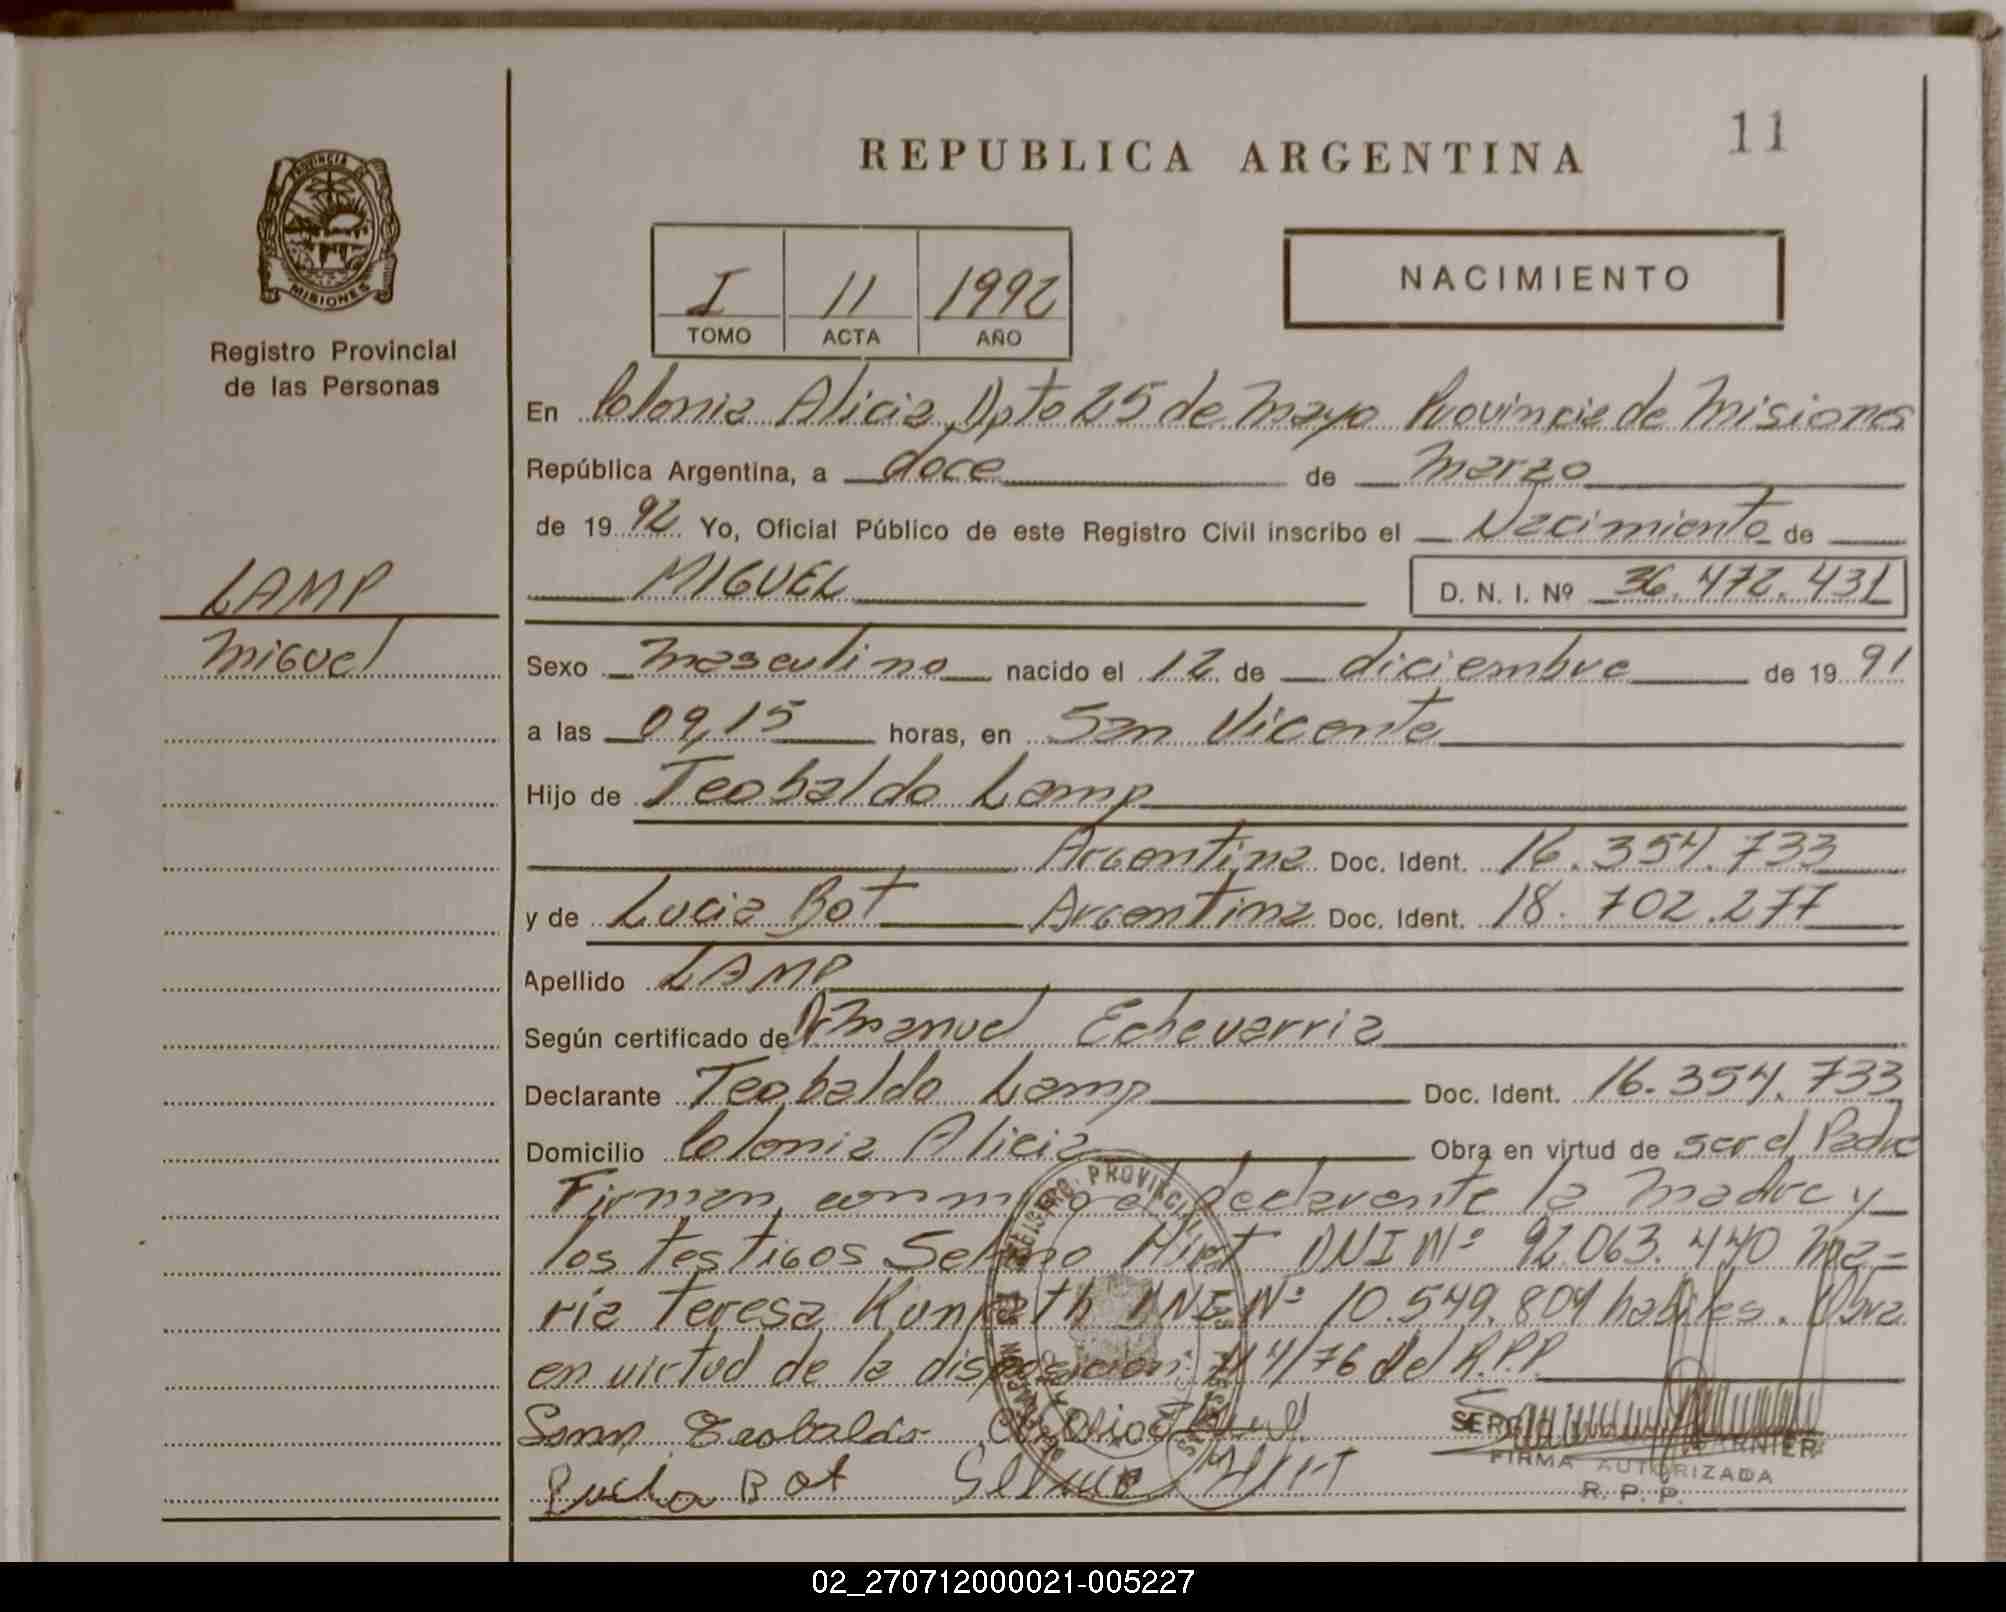 11
REPUBLICA ARGENTINA
PROVINCIA DE
MISIONES
Registro Provincial
de las Personas
NACIMIENTO
I 11 1992
TOMO ACTA AÑO
En Colonia Alicia Dpto 25 de Mayo Provincia de Misiones
República Argentina, a doce de Marzo
de 1992 Yo, Oficial Público de este Registro Civil inscribo el Nacimiento de
MIGUEL D. N. I. Nº 36.472.431
LAMP
Miguel
Sexo Masculino nacido el 12 de diciembre de 1991
a las 09,15 horas, en San Vicente
Hijo de Teobaldo Lamp
Argentina Doc. Ident. 16.354.733
y de Lucia Bot Argentina Doc. Ident. 18.702.277
Apellido LAMP
Según certificado de Dr Manuel Echevarria
Declarante Teobaldo Lamp Doc. Ident. 16.354.733
Domicilio Colonia Alicia Obra en virtud de ser el Padre
Firman conmigo el declarante la Madre y
los testigos Selmo Hirt DNI Nº 92.063.440 Ma=
ria Teresa Kunrath DNI Nº 10.549.804 habiles. Obra
en virtud de la disposicion 114/76 del R.P.P.
Teobaldo
Lucia Bot
SERGIO
FIRMA AUTORIZADA
R. P. P.
02_270712000021-005227